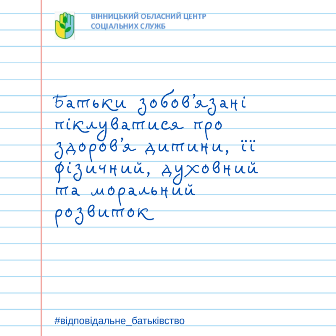 ВІННИЦЬКИЙ ОБЛАСНИЙ ЦЕНТР
СОЦІАЛЬНИХ СЛУЖБ
Батьки зобов'язані
піклуватися про
здоров'я дитини, її
фізичний, духовний
та моральний
розвиток
#відповідальне_батьківство